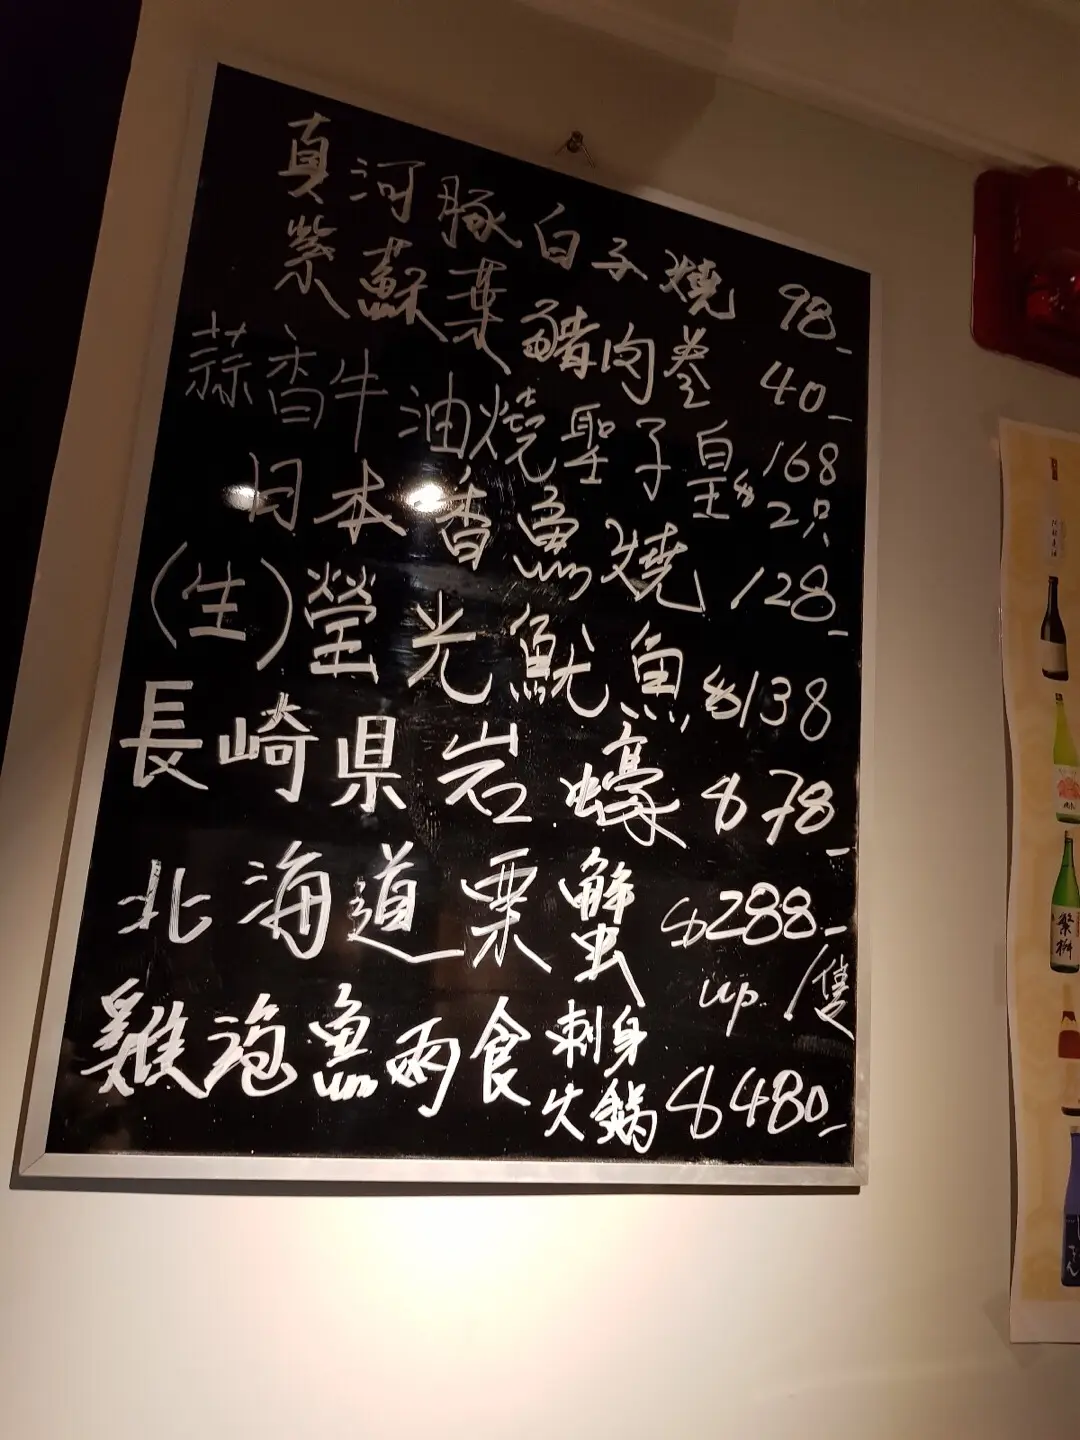 真河豚白子燒 98-
紫蘇葉豬肉卷 40-
蒜香牛油燒聖子皇 $168
2只
日本香魚燒 128-
(生)螢光魷魚 $138
長崎県岩蠔 $78-
北海道栗蟹 $288-
up /隻
雞泡魚兩食 刺身
火鍋 $480-
繁桝